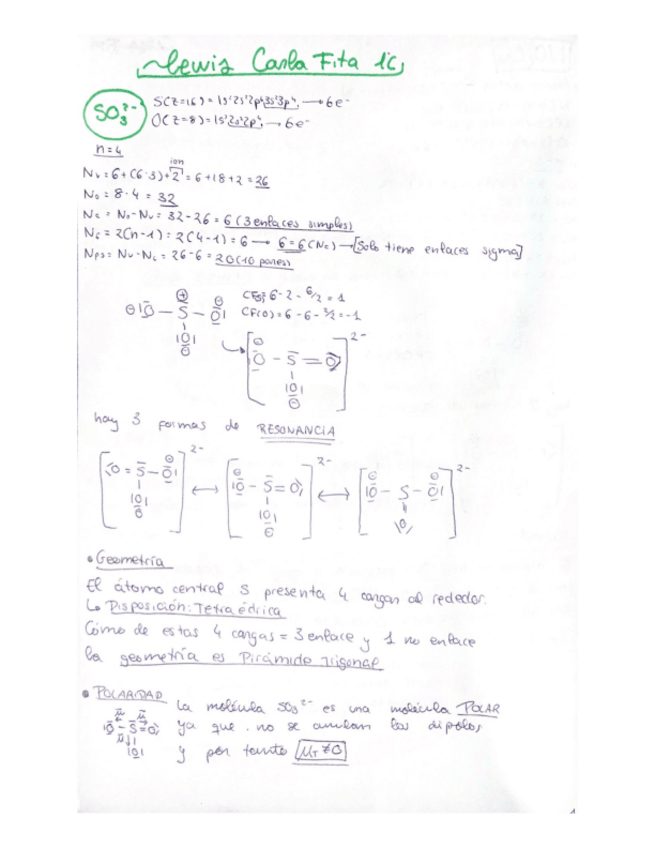 Lewis Carla Fita 1C
SO₃²⁻
S(Z=16) = 1s²2s²2p⁶3s²3p⁴ → 6e⁻
O(Z=8) = 1s²2s²2p⁴ → 6e⁻
n=4
ion
Nv = 6+(6·3)+2 = 6+18+2 = 26
No = 8·4 = 32
Nc = No-Nv = 32-26 = 6 (3 enlaces simples)
Nc = 2(n-1) = 2(4-1) = 6 → 6=6(Nc) → [Solo tiene enlaces sigma]
Nps = Nv-Nc = 26-6 = 20 (10 pares)
6-2-6/2 = 1
CF(O) = 6-6-2/2 = -1
hay 3 formas de RESONANCIA
• Geometría
El átomo central S presenta 4 cargas al rededor.
↳ Disposición: Tetraédrica
Cómo de estas 4 cargas = 3 enlace y 1 no enlace
la geometría es Pirámide trigonal
• POLARIDAD La molécula SO₃²⁻ es una molécula POLAR
ya que no se anulan los dipolos
y por tanto μT ≠ 0